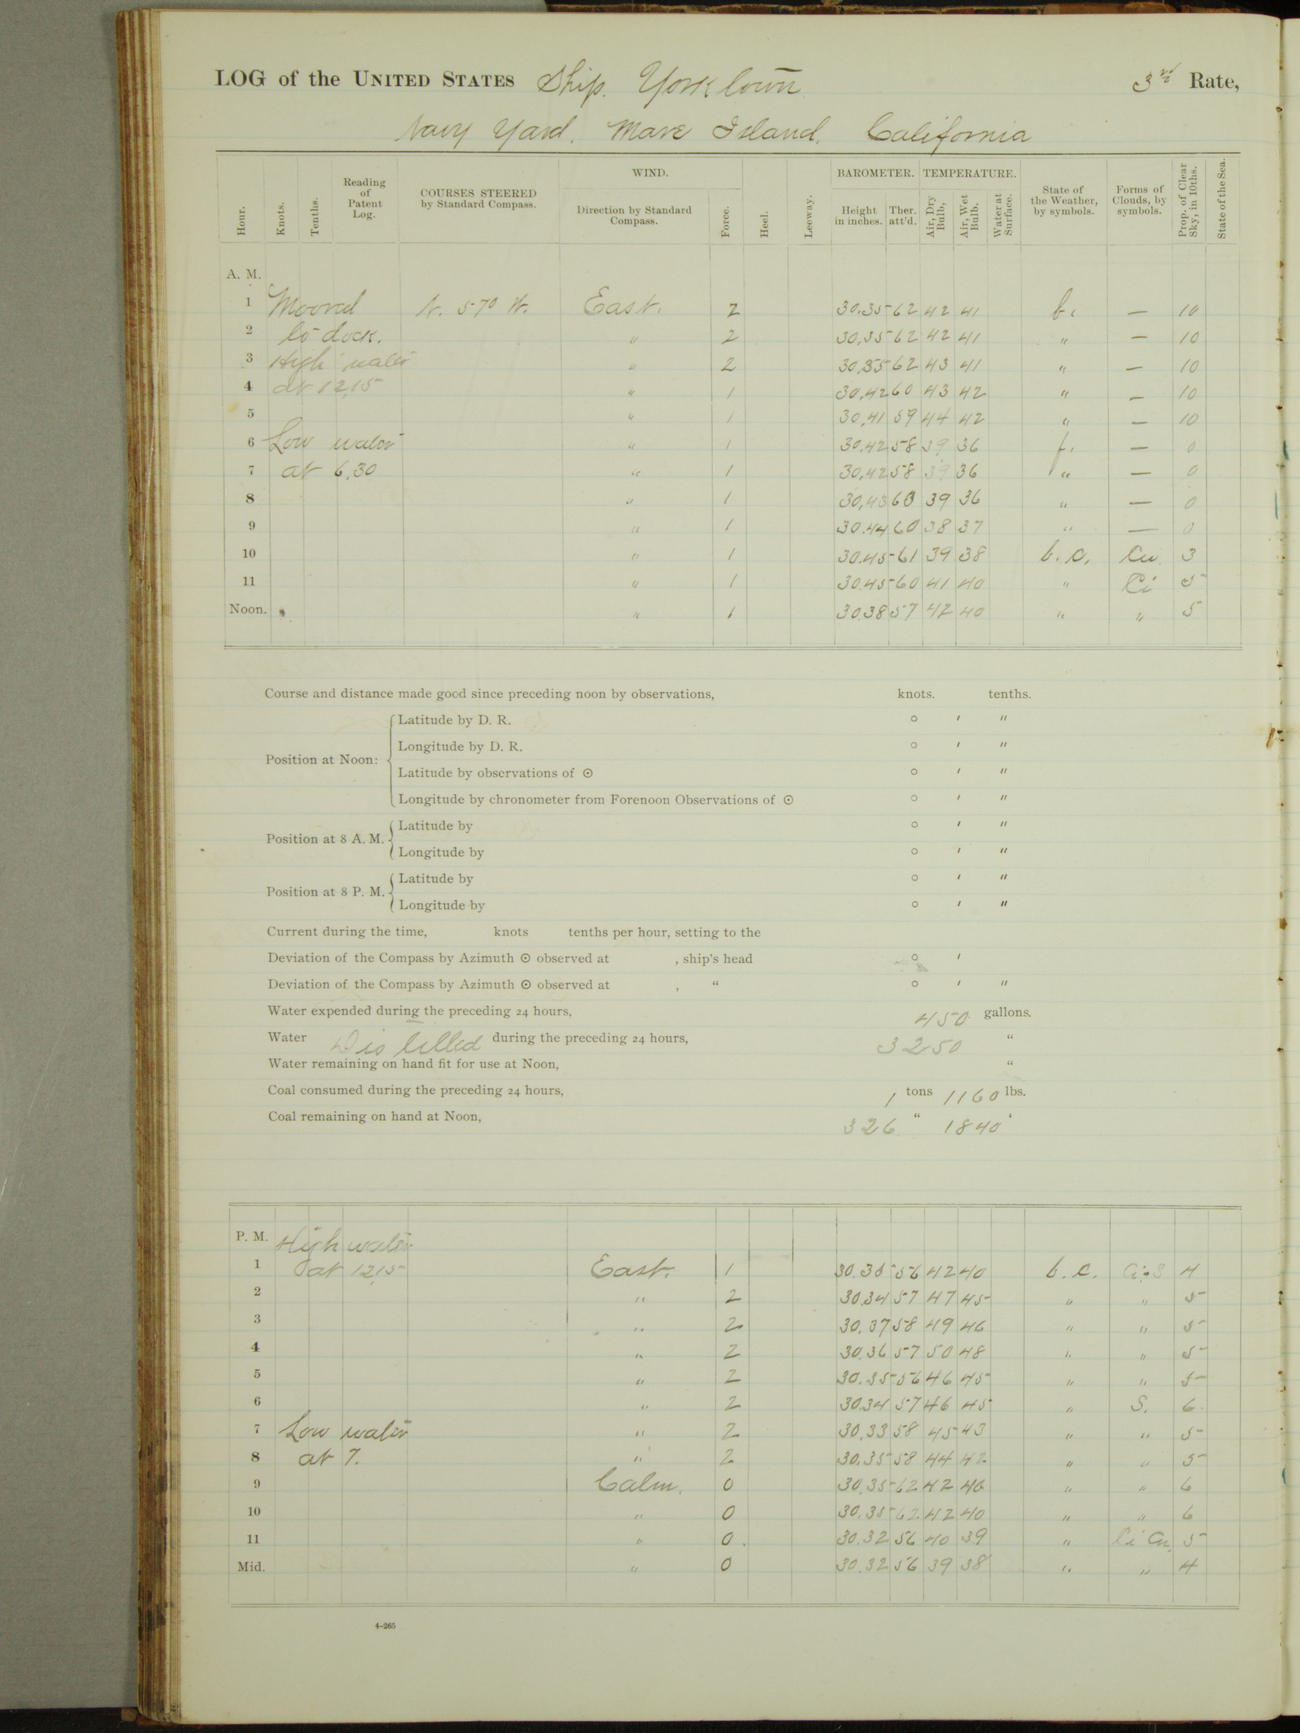 LOG of the UNITED STATES Ship. Yorktown 3rd Rate,
Navy Yard, Mare Island, California
Hour. Knots. Tenths. Reading of Patent Log. COURSES STEERED by Standard Compass. WIND. Direction by Standard Compass. Force. Heel. Leeway. BAROMETER. Height in inches. Ther. att'd. TEMPERATURE. Air, Dry Bulb, Air, Wet Bulb. Water at Surface. State of the Weather, by symbols. Forms of Clouds, by symbols. Prop. of Clear Sky, in 10ths. State of the Sea.
A. M.
1 Moored N. 57° W. East. 2 30.35 62 42 41 b. — 10
2 to dock. " 2 30.35 62 42 41 " — 10
3 High water " 2 30.35 62 43 41 " — 10
4 at 12,15 " 1 30.42 60 43 42 " — 10
5 " 1 30.41 59 44 42 " — 10
6 Low water " 1 30.42 58 39 36 f. — 0
7 at 6,30 " 1 30.42 58 39 36 " — 0
8 " 1 30.43 60 39 36 " — 0
9 " 1 30.44 60 38 37 " — 0
10 " 1 30.45 61 39 38 b.c. Cu 3
11 " 1 30.45 60 41 40 " Ci 5
Noon. " 1 30.38 57 42 40 " " 5
Course and distance made good since preceding noon by observations, knots. tenths.
Position at Noon: Latitude by D. R. ° ′ ″
Longitude by D. R. ° ′ ″
Latitude by observations of ☉ ° ′ ″
Longitude by chronometer from Forenoon Observations of ☉ ° ′ ″
Position at 8 A. M. Latitude by ° ′ ″
Longitude by ° ′ ″
Position at 8 P. M. Latitude by ° ′ ″
Longitude by ° ′ ″
Current during the time, knots tenths per hour, setting to the
Deviation of the Compass by Azimuth ☉ observed at , ship's head ° ′
Deviation of the Compass by Azimuth ☉ observed at , " ° ′ ″
Water expended during the preceding 24 hours, 450 gallons.
Water Distilled during the preceding 24 hours, 3250 "
Water remaining on hand fit for use at Noon, "
Coal consumed during the preceding 24 hours, 1 tons 1160 lbs.
Coal remaining on hand at Noon, 326 " 1840 "
P. M. High water
1 at 12,15 East. 1 30.36 56 42 40 b.c. Ci-S 4
2 " 2 30.34 57 47 45 " " 5
3 " 2 30.37 58 49 46 " " 5
4 " 2 30.36 57 50 48 " " 5
5 " 2 30.35 56 46 45 " " 5
6 " 2 30.34 57 46 45 " S. 6
7 Low water " 2 30.33 58 45 43 " " 5
8 at 7. " 2 30.35 58 44 42 " " 5
9 Calm. 0 30.35 62 42 40 " " 6
10 " 0 30.35 62 42 40 " " 6
11 " 0. 30.32 56 40 39 " Ci Cu. 5
Mid. " 0 30.32 56 39 38 " " 4
4-265